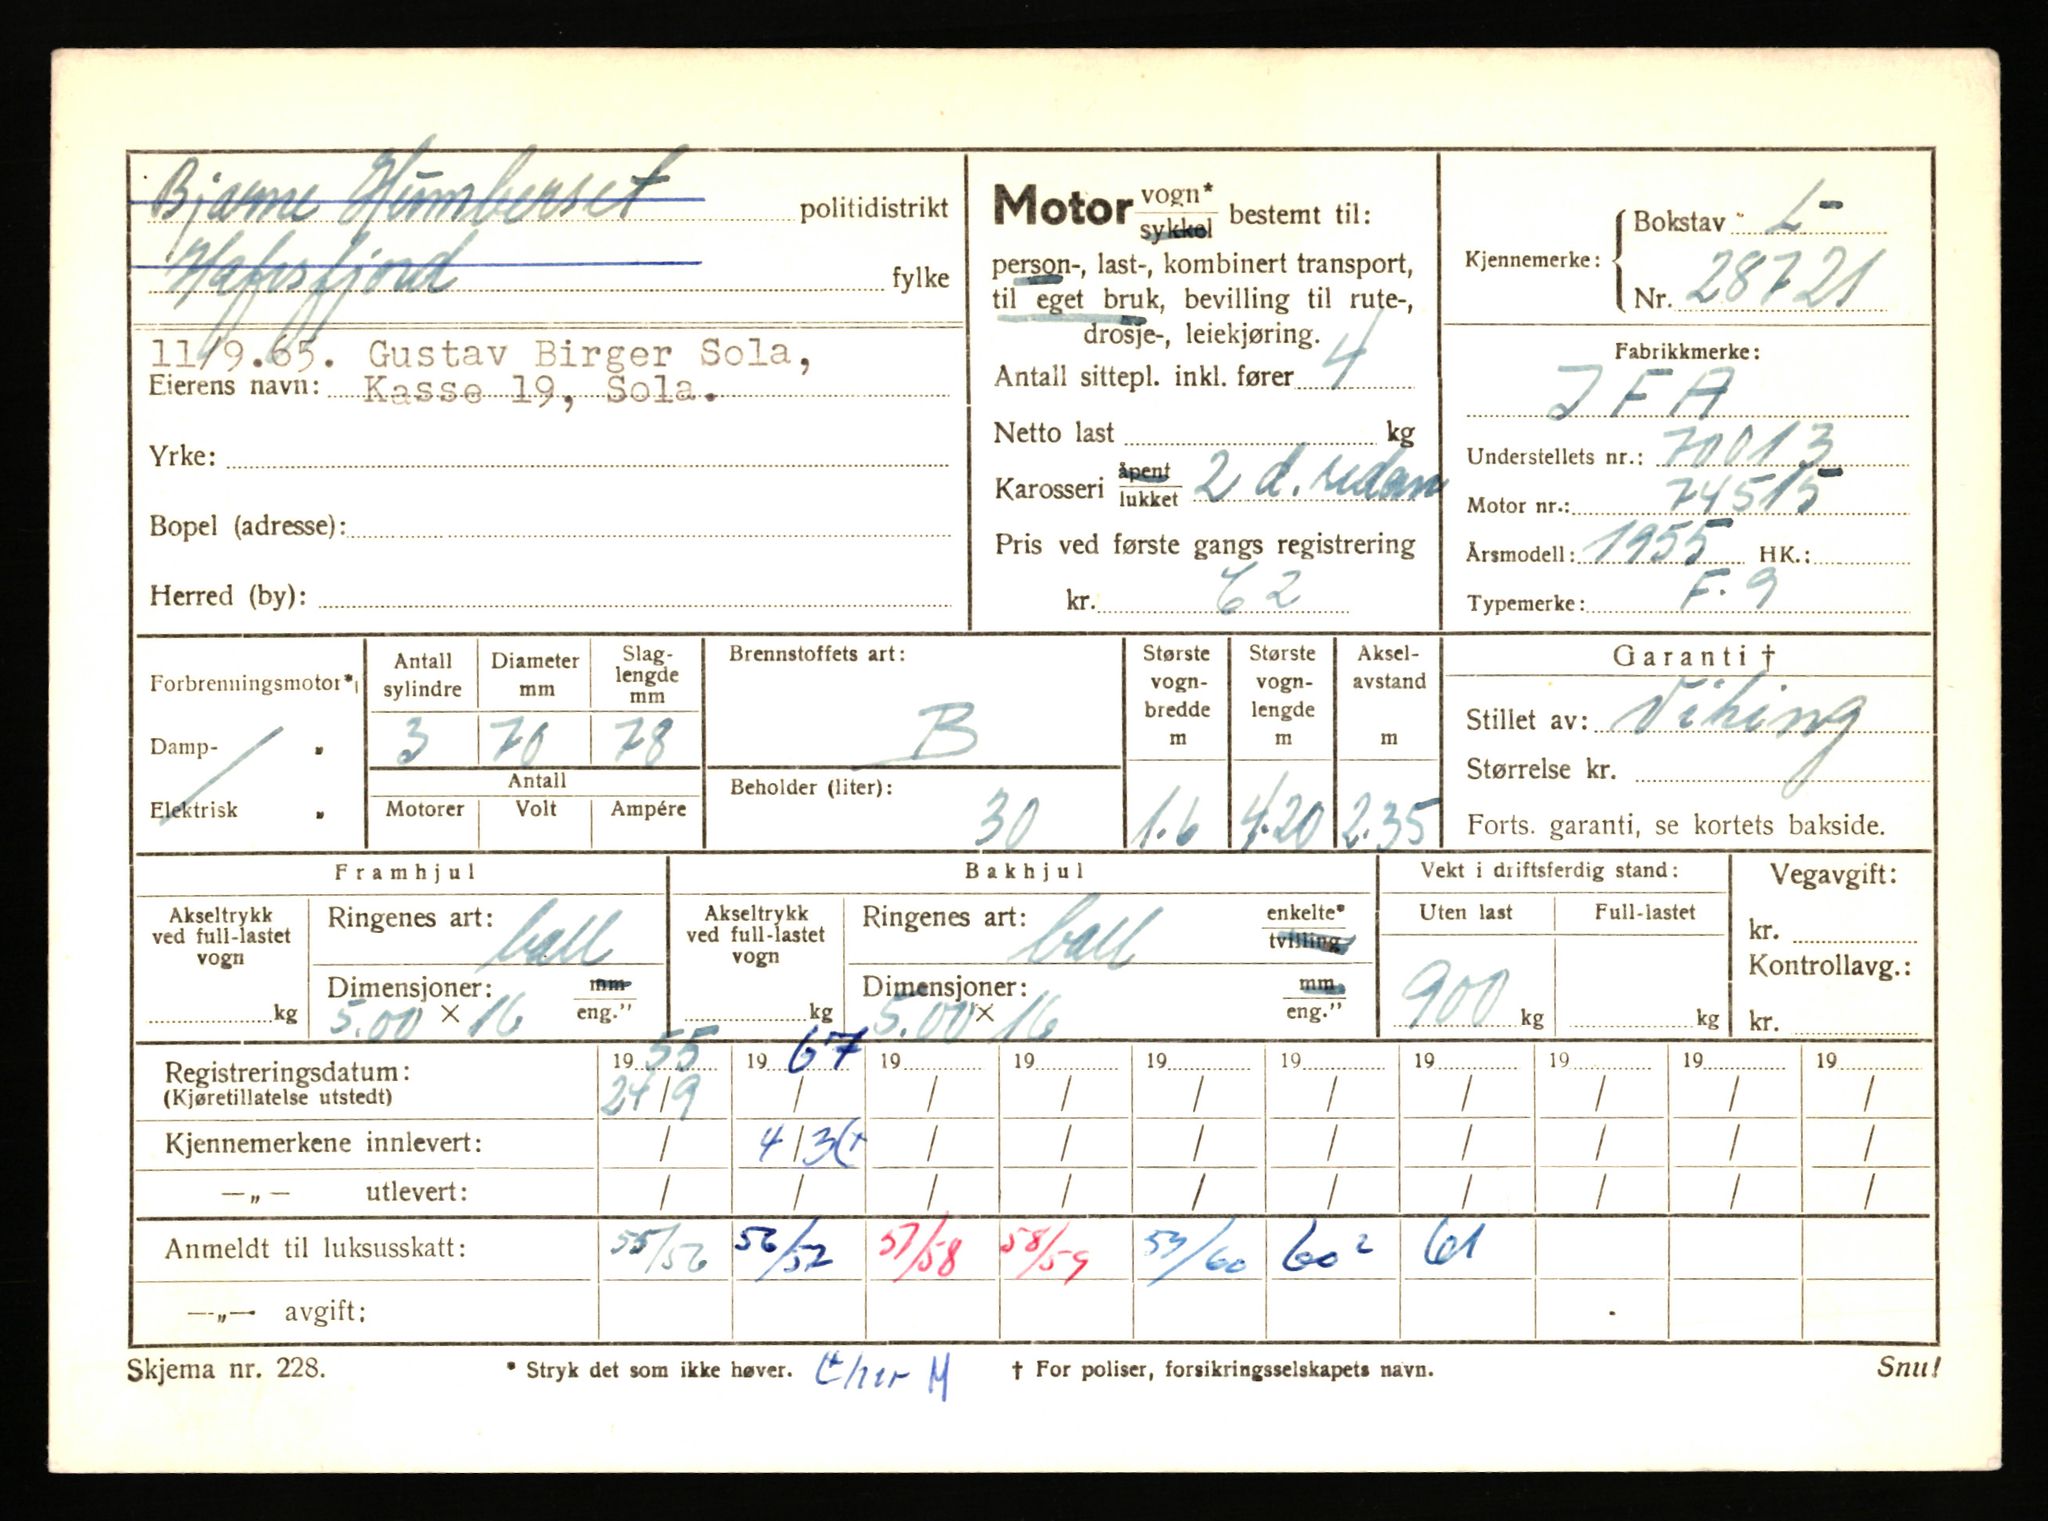 Bjarne Humberset politidistrikt
Hafrsfjord fylke
11/9.65. Gustav Birger Sola,
Eierens navn: Kasse 19, Sola.
Yrke:
Bopel (adresse):
Herred (by):
Motor vogn* sykkel bestemt til:
person-, last-, kombinert transport,
til eget bruk, bevilling til rute-,
drosje-, leiekjøring.
Antall sittepl. inkl. fører 4
Netto last kg
Karosseri åpent lukket 2 d. sedan
Pris ved første gangs registrering
kr. 62
Kjennemerke: Bokstav L-
Nr. 28721
Fabrikkmerke:
IFA
Understellets nr.: 70013
Motor nr.: 74515
Årsmodell: 1955 HK.:
Typemerke: F. 9
Forbrenningsmotor*)
Damp- „
Elektrisk „
Antall sylindre 3
Diameter mm 70
Slag-lengde mm 78
Antall
Motorer Volt Ampére
Brennstoffets art:
B
Beholder (liter):
30
Største vogn-bredde m 1.6
Største vogn-lengde m 4.20
Aksel-avstand m 2.35
Garanti †
Stillet av: Viking
Størrelse kr.
Forts. garanti, se kortets bakside.
Framhjul
Akseltrykk ved full-lastet vogn
kg
Ringenes art: ball
Dimensjoner: mm
5.00 × 16 eng.”
Bakhjul
Akseltrykk ved full-lastet vogn
kg
Ringenes art: ball enkelte* tvilling
Dimensjoner: mm
5.00 × 16 eng.”
Vekt i driftsferdig stand:
Uten last Full-lastet
900 kg kg
Vegavgift:
kr.
Kontrollavg.:
kr.
19 55 19 67 19 19 19 19 19 19 19 19
Registreringsdatum: 24/9 / / / / / / / / /
(Kjøretillatelse utstedt)
Kjennemerkene innlevert: / 4/3 / / / / / / / /
—„— utlevert: / / / / / / / / / /
Anmeldt til luksusskatt: 55/56 56/57 57/58 58/59 59/60 60² 61
—„— avgift:
Skjema nr. 228. * Stryk det som ikke høver. † For poliser, forsikringsselskapets navn. Snu!